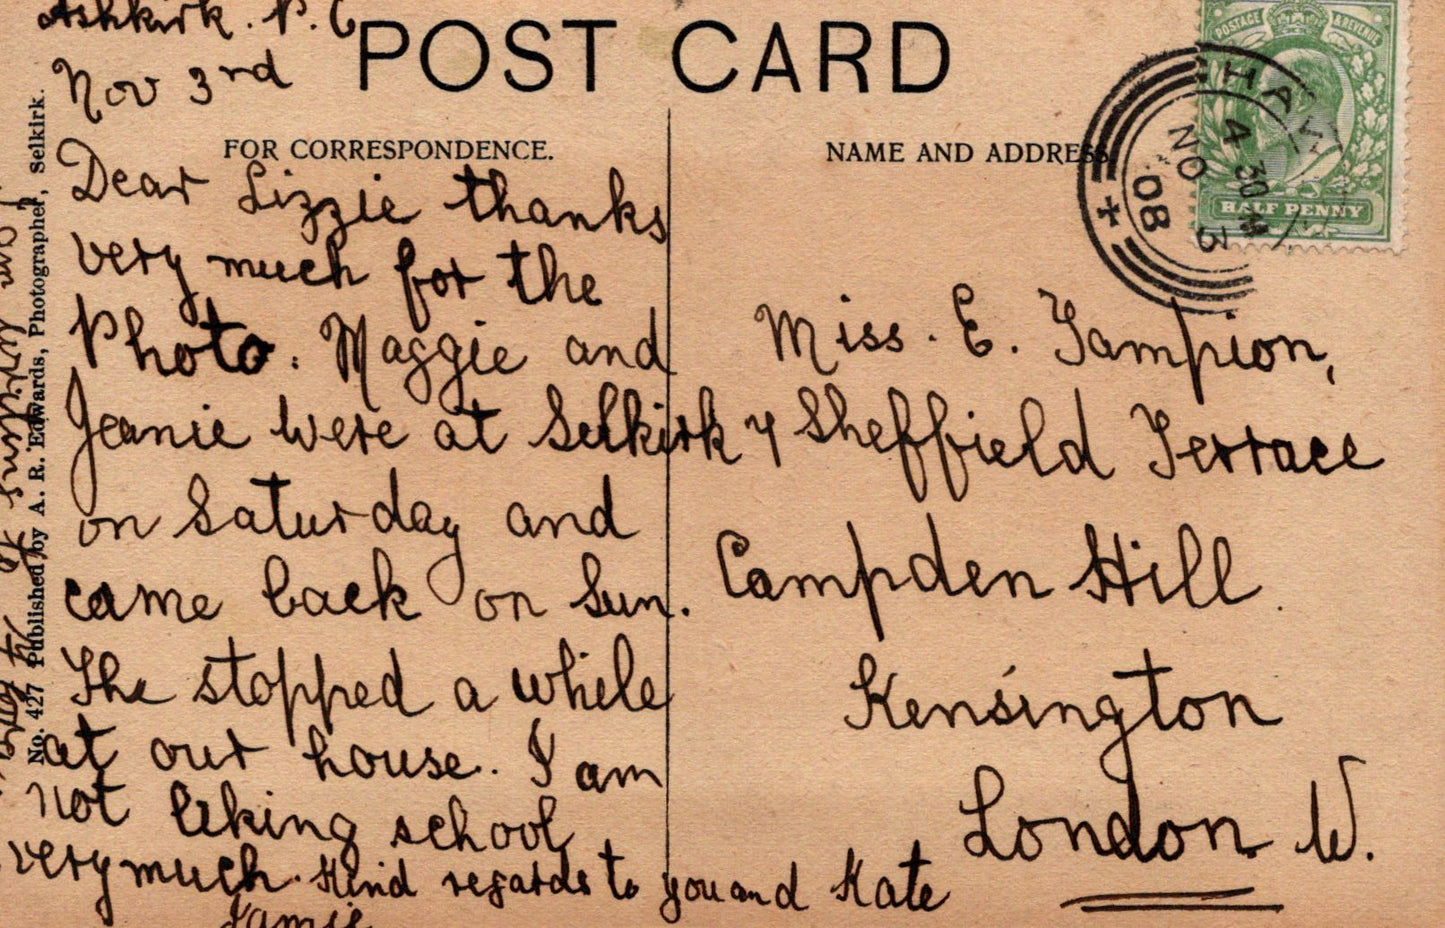 Ashkirk. P. C
Nov 3rd
POST CARD
FOR CORRESPONDENCE.
NAME AND ADDRESS.
Dear Lizzie thanks
very much for the
Photo. Maggie and
Jeanie were at Selkirk
on Saturday and
came back on Sun.
The stopped a while
at our house. I am
not liking school
very much. Kind regards to you and Kate
Jamie
Miss. E. Tampion,
7 Sheffield Terrace
Campden Hill
Kensington
London. W.
POSTAGE & REVENUE
HALF PENNY
HA
4 30 PM
NO 3
08
No. 427 Published by A. R. Edwards, Photographer, Selkirk.
I am